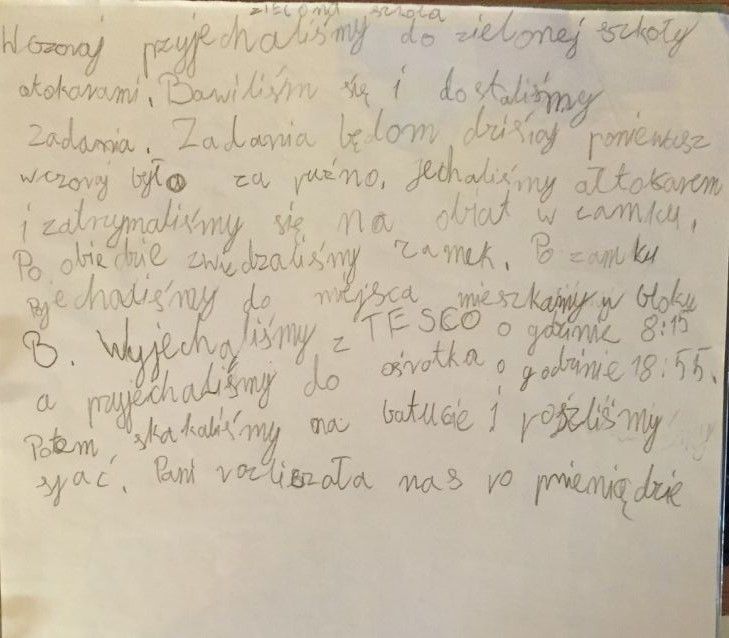 zielona szkoła
Wczoraj przyjechaliśmy do zielonej szkoły
atokarami. Bawiliśm się i dostaliśmy
zadania. Zadania będom dzisiaj poniewasz
wczoraj było za puźno. Jechaliśmy ałtokarem
i zatrzymaliśmy się na obiat w zamku.
Po obiedzie zwiedzaliśmy zamek. Po zamku
jechaliśmy do miejsca mieszkamy w bloku
B. Wyjechaliśmy z TESCO o godzinie 8:15
a przyjechaliśmy do ośrotka o godzinie 18:55.
Potem skakaliśmy na batucie i poszliśmy
spać. Pani rozliczała nas po pnieniędzie